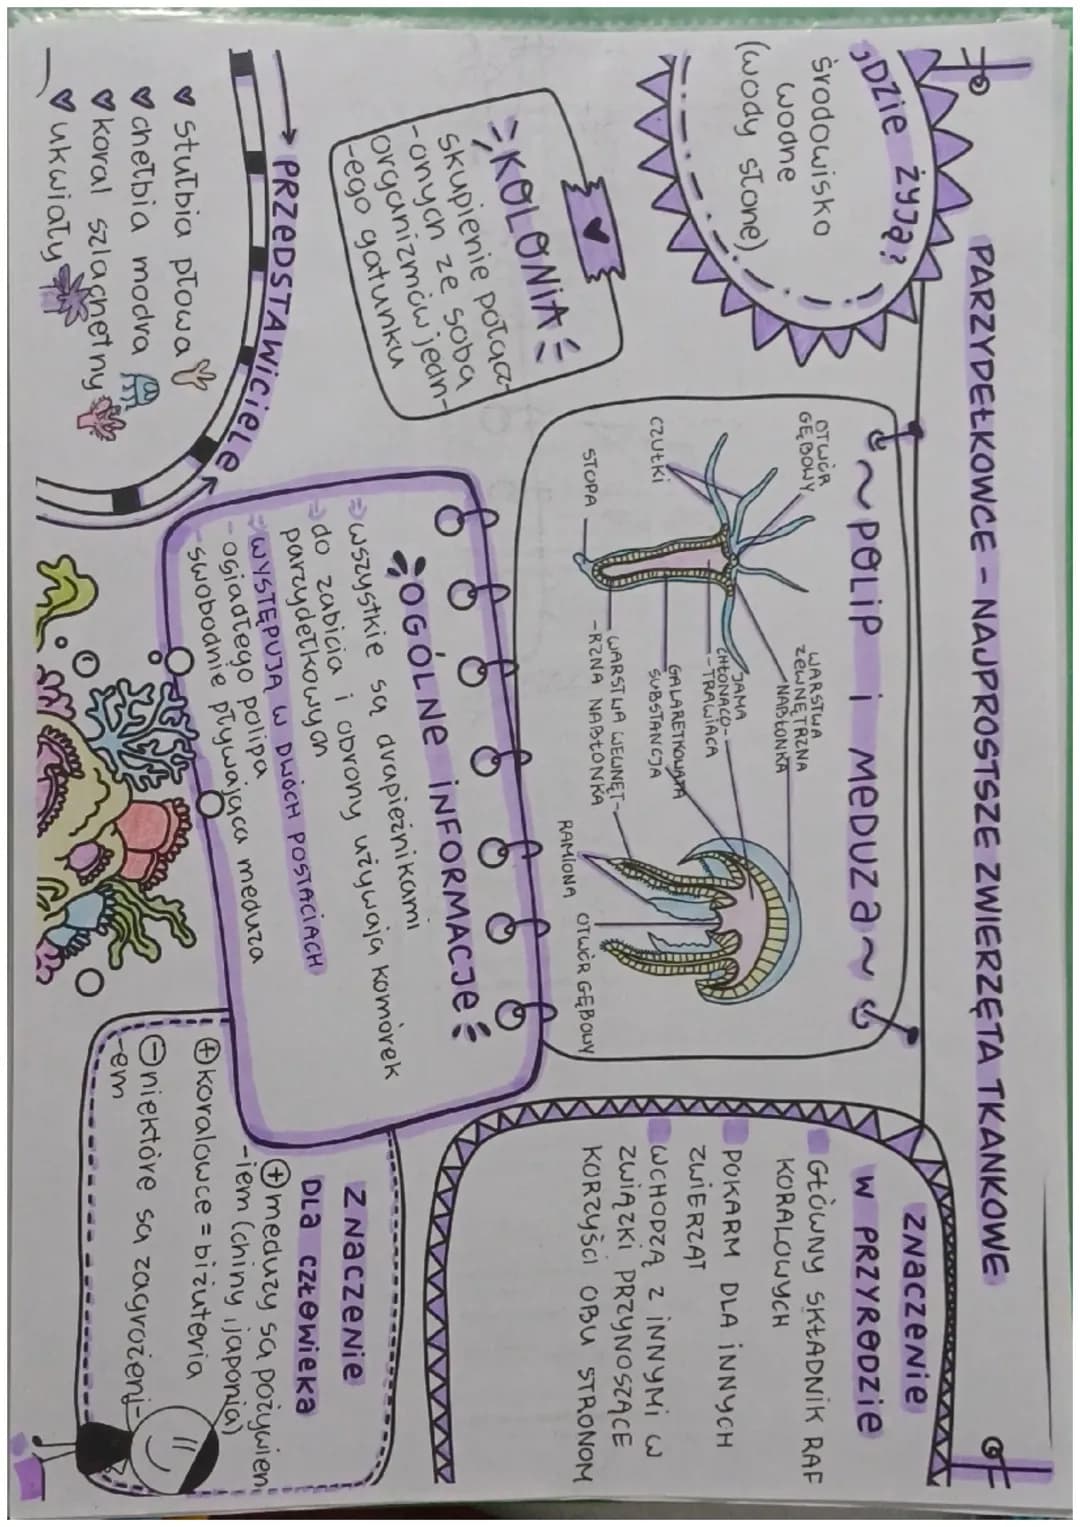 PARZYDEŁKOWCE - NAJPROSTSZE ZWIERZĘTA TKANKOWE
GDZIE ŻYJĄ?
środowisko
wodne
(wody słone)
KOLONIA
skupienie połącz-
-onych ze sobą
organizmów jedn-
-ego gatunku
→ PRZEDSTAWICIELE
♥ stułbia płowa
♥ chełbia modra
♥ koral szlachetny
♥ ukwiały
~POLIP i MEDUZA~
OTWÓR
GĘBOWY
CZUŁKI
STOPA
WARSTWA
ZEWNĘTRZNA
NABŁONKA
JAMA
CHŁONĄCO-
-TRAWIĄCA
GALARETKOWATA
SUBSTANCJA
WARSTWA WEWNĘT-
-RZNA NABŁONKA
RAMIONA
OTWÓR GĘBOWY
OGÓLNE INFORMACJE
⇒ wszystkie są drapieżnikami
⇒ do zabicia i obrony używają komórek
parzydełkowych
⇒ WYSTĘPUJĄ W DWÓCH POSTACIACH
- osiadłego polipa
- swobodnie pływająca meduza
ZNACZENIE
W PRZYRODZIE
GŁÓWNY SKŁADNIK RAF
KORALOWYCH
POKARM DLA INNYCH
ZWIERZĄT
WCHODZĄ Z INNYMI W
ZWIĄZKI PRZYNOSZĄCE
KORZYŚCI OBU STRONOM
ZNACZENIE
DLA CZŁOWIEKA
⊕ meduzy są pożywien
-iem (chiny i japonia)
⊕ koralowce = biżuteria
⊖ niektóre są zagrożeni-
-em